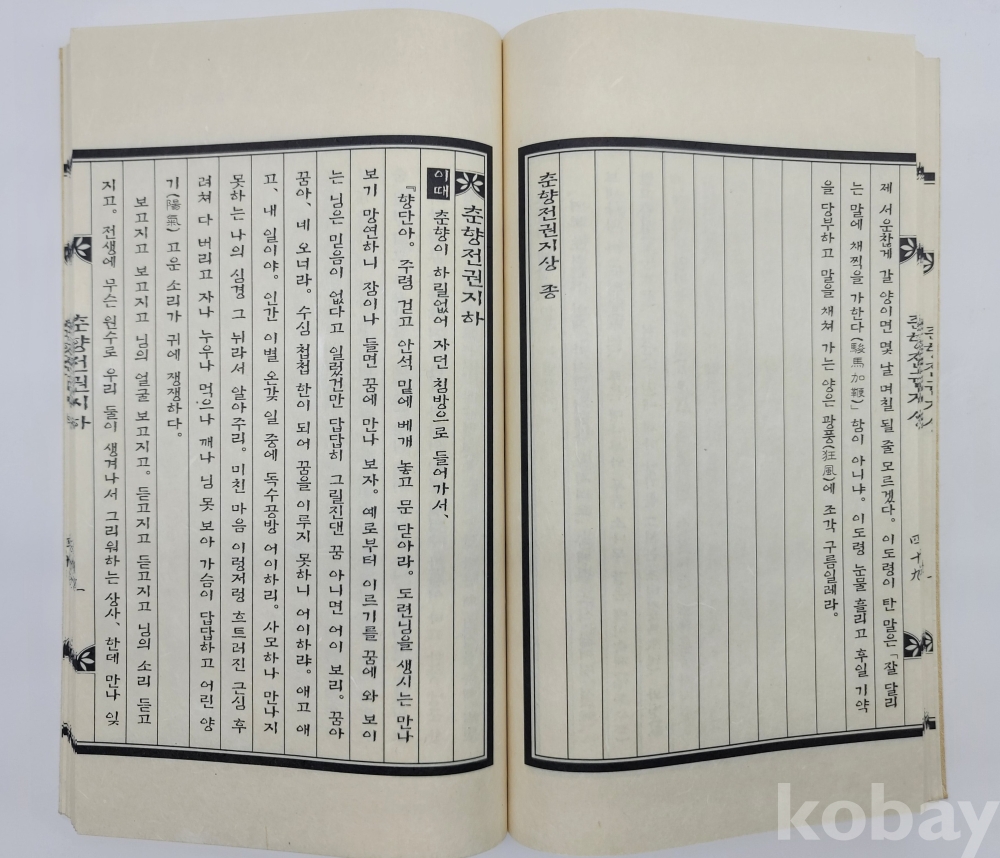 제 서운찮게 갈 양이면 몇 날 며칠 될 줄 모르겠다. 이도령이 탄 말은 「잘 달리
는 말에 채찍을 가한다(駿馬加鞭)」 함이 아니냐. 이도령 눈물 흘리고 후일 기약
을 당부하고 말을 채쳐 가는 양은 광풍(狂風)에 조각 구름일레라.
춘향전권지상 종
四十九
춘향전권지하
이때 춘향이 하릴없어 자던 침방으로 들어가서、
『향단아. 주렴 걷고 안석 밑에 베개 놓고 문 닫아라. 도련님을 생시는 만나
보기 망연하니 잠이나 들면 꿈에 만나 보자. 예로부터 이르기를 꿈에 와 보이
는 님은 믿음이 없다고 일렀건만 답답히 그릴진댄 꿈 아니면 어이 보리. 꿈아
꿈아、네 오너라. 수심 첩첩 한이 되어 꿈을 이루지 못하니 어이하랴. 애고 애
고、내 일이야. 인간 이별 온갖 일 중에 독수공방 어이하리. 사모하나 만나지
못하는 나의 심경 그 뉘라서 알아주리. 미친 마음 이렁저렁 흐트러진 근심 후
려쳐 다 버리고 자나 누우나 먹으나 깨나 님 못 보아 가슴이 답답하고 어린 양
기(陽氣) 고운 소리가 귀에 쟁쟁하다.
보고지고 보고지고 님의 얼굴 보고지고. 듣고지고 듣고지고 님의 소리 듣고
지고. 전생에 무슨 원수로 우리 둘이 생겨나서 그리워하는 상사、한데 만나 잊
춘향전권지하
kobay